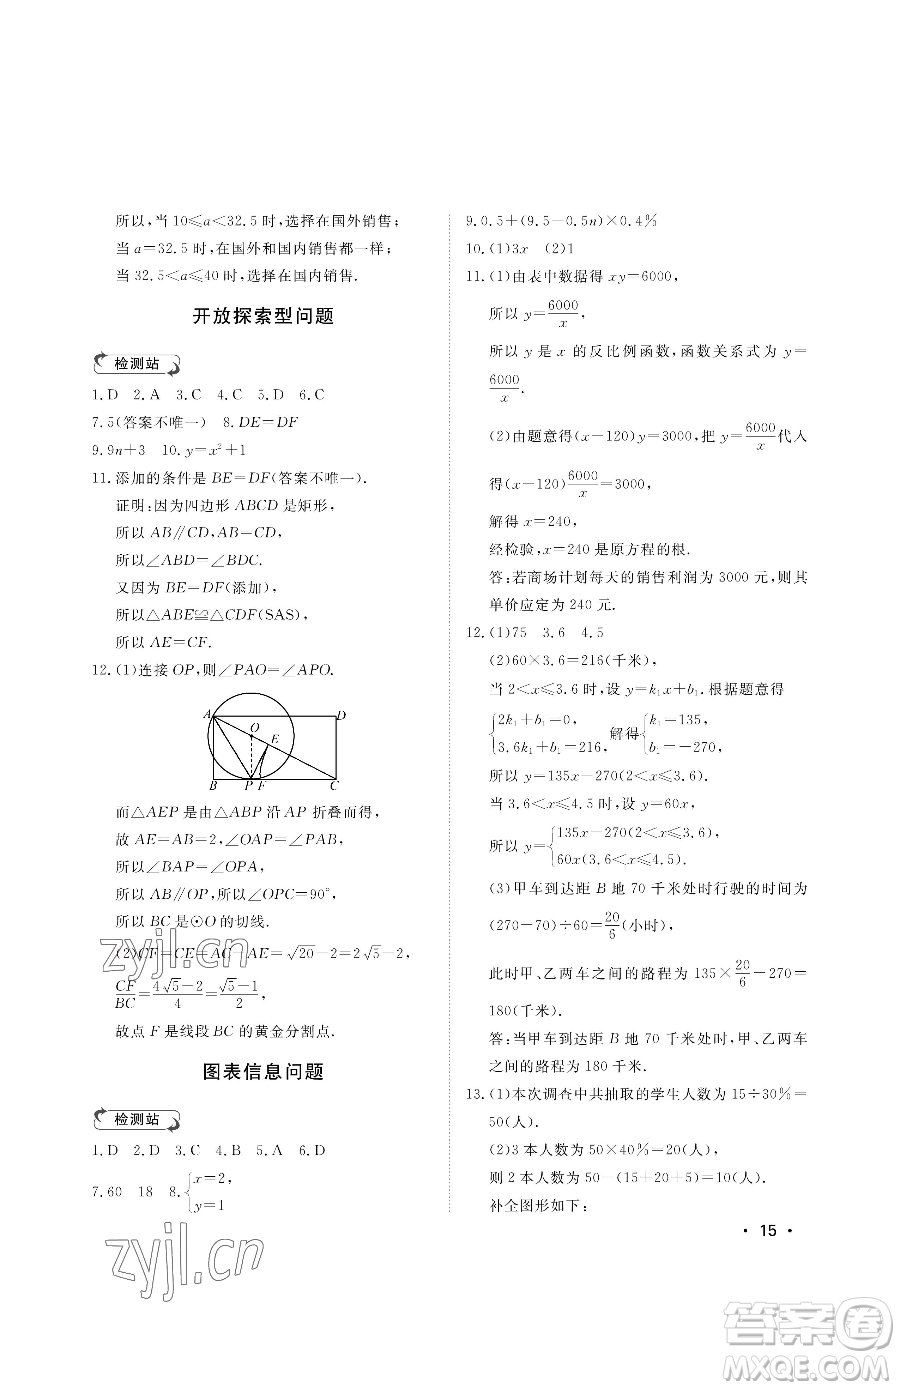 所以,当 10≤a<32.5 时,选择在国外销售;
当 a=32.5 时,在国外和国内销售都一样;
当 32.5<a≤40 时,选择在国内销售.
开放探索型问题
检测站
1.D 2.A 3.C 4.C 5.D 6.C
7.5(答案不唯一) 8.DE=DF
9.9n+3 10.y=x²+1
11.添加的条件是 BE=DF(答案不唯一).
证明:因为四边形 ABCD 是矩形,
所以 AB∥CD,AB=CD,
所以∠ABD=∠BDC.
又因为 BE=DF(添加),
所以△ABE≌△CDF(SAS),
所以 AE=CF.
12.(1)连接 OP,则∠PAO=∠APO.
A D O E B P F C
而△AEP 是由△ABP 沿 AP 折叠而得,
故 AE=AB=2,∠OAP=∠PAB,
所以∠BAP=∠OPA,
所以 AB∥OP,所以∠OPC=90°,
所以 BC 是⊙O 的切线.
(2)CF=CE=AC-AE=√20-2=2√5-2,
CF/BC=(4√5-2)/4=(√5-1)/2,
故点 F 是线段 BC 的黄金分割点.
图表信息问题
检测站
1.D 2.D 3.C 4.B 5.A 6.D
7.60 18 8.{x=2,
y=1
9.0.5+(9.5-0.5n)×0.4%
10.(1)3x (2)1
11.(1)由表中数据得 xy=6000,
所以 y=6000/x,
所以 y 是 x 的反比例函数,函数关系式为 y=
6000/x.
(2)由题意得(x-120)y=3000,把 y=6000/x代入
得(x-120)6000/x=3000,
解得 x=240,
经检验,x=240 是原方程的根.
答:若商场计划每天的销售利润为 3000 元,则其
单价应定为 240 元.
12.(1)75 3.6 4.5
(2)60×3.6=216(千米),
当 2<x≤3.6 时,设 y=k₁x+b₁.根据题意得
{2k₁+b₁=0, 解得{k₁=135,
3.6k₁+b₁=216, b₁=-270,
所以 y=135x-270(2<x≤3.6).
当 3.6<x≤4.5 时,设 y=60x,
所以 y={135x-270(2<x≤3.6),
60x(3.6<x≤4.5).
(3)甲车到达距 B 地 70 千米处时行驶的时间为
(270-70)÷60=20/6(小时),
此时甲、乙两车之间的路程为 135×20/6-270=
180(千米).
答:当甲车到达距 B 地 70 千米处时,甲、乙两车
之间的路程为 180 千米.
13.(1)本次调查中共抽取的学生人数为 15÷30%=
50(人).
(2)3 本人数为 50×40%=20(人),
则 2 本人数为 50-(15+20+5)=10(人).
补全图形如下:
· 15 ·
zyjl.cn
zyjl.cn
答案圈
MXQE.COM